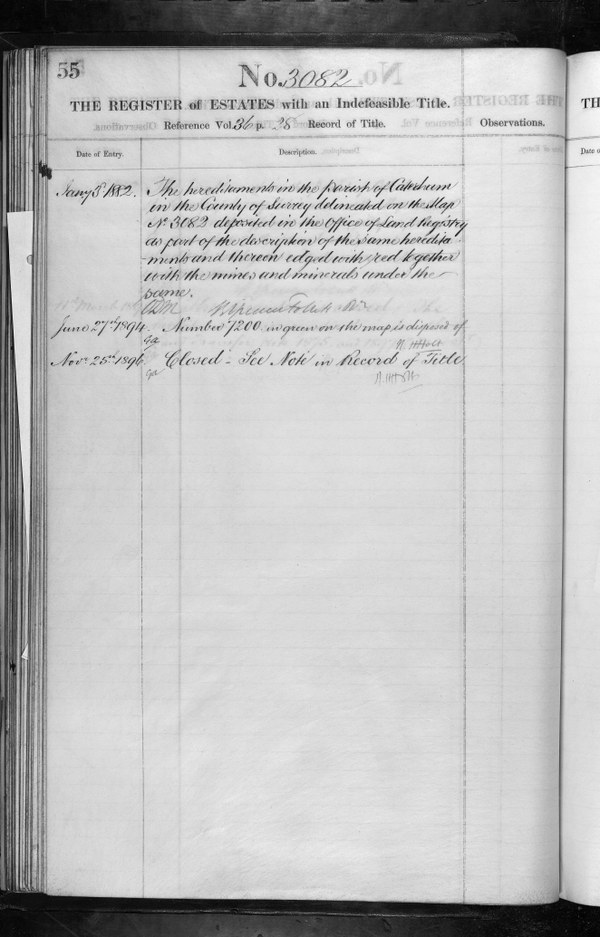 55
No. 3082
THE REGISTER of ESTATES with an Indefeasible Title.
Reference Vol. 36 p. 28 Record of Title. Observations.
Date of Entry. Description.
Jany 3d 1882. The hereditaments in the parish of Caterham
in the County of Surrey delineated on the Map
No 3082 deposited in the Office of Land Registry
as part of the description of the same heredita
-ments and thereon edged with red together
with the mines and minerals under the
same.
June 27th 1894. Number 7200 in green on the map is disposed of
R. H. Holt
Novr 25th 1896. Closed - See Note in Record of Title
R. H. Holt
TH
Da